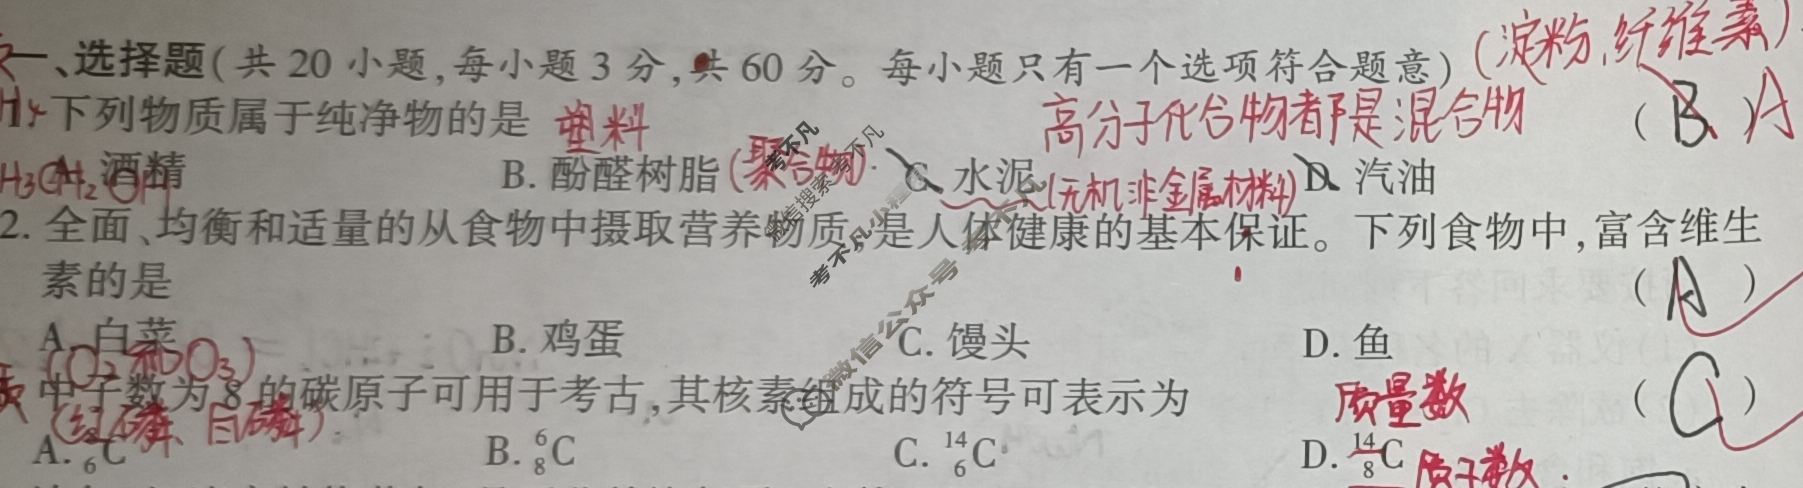 一、选择题(共20小题,每小题3分,共60分。每小题只有一个选项符合题意)(淀粉、纤维素)
下列物质属于纯净物的是 塑料 高分子化合物都是混合物 ( B )A
A. 酒精 B. 酚醛树脂(聚合物) C. 水泥(无机非金属材料) D. 汽油
H₃CH₂OH
2. 全面、均衡和适量的从食物中摄取营养物质,是人体健康的基本保证。下列食物中,富含维生
素的是 ( A )
A. 白菜 B. 鸡蛋 C. 馒头 D. 鱼
(O₂和O₃)
中子数为8的碳原子可用于考古,其核素组成的符号可表示为 质量数 ( C )
(红磷、白磷)
A. ₆C B. ⁶₈C C. ¹⁴₆C D. ¹⁴₈C 质子数
微信搜索 考不凡
考不凡小程序
微信公众号 考不凡